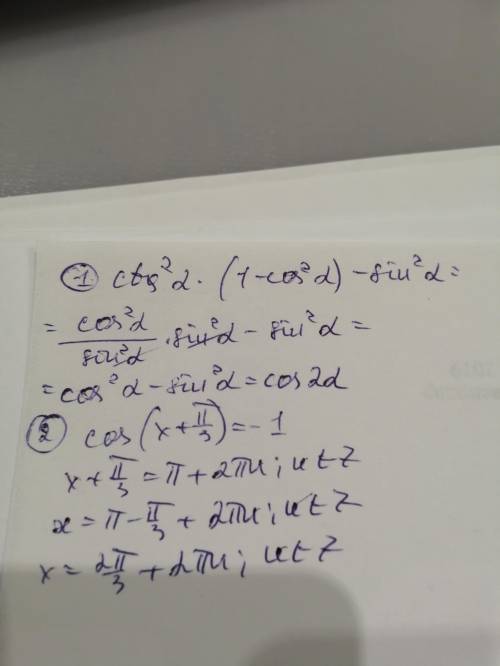 ① ctg²α · (1 - cos²α) - sin²α =
= cos²α / sin²α · sin²α - sin²α =
= cos²α - sin²α = cos2α
② cos(x + π/3) = -1
x + π/3 = π + 2πn; n ∈ Z
x = π - π/3 + 2πn; n ∈ Z
x = 2π/3 + 2πn; n ∈ Z